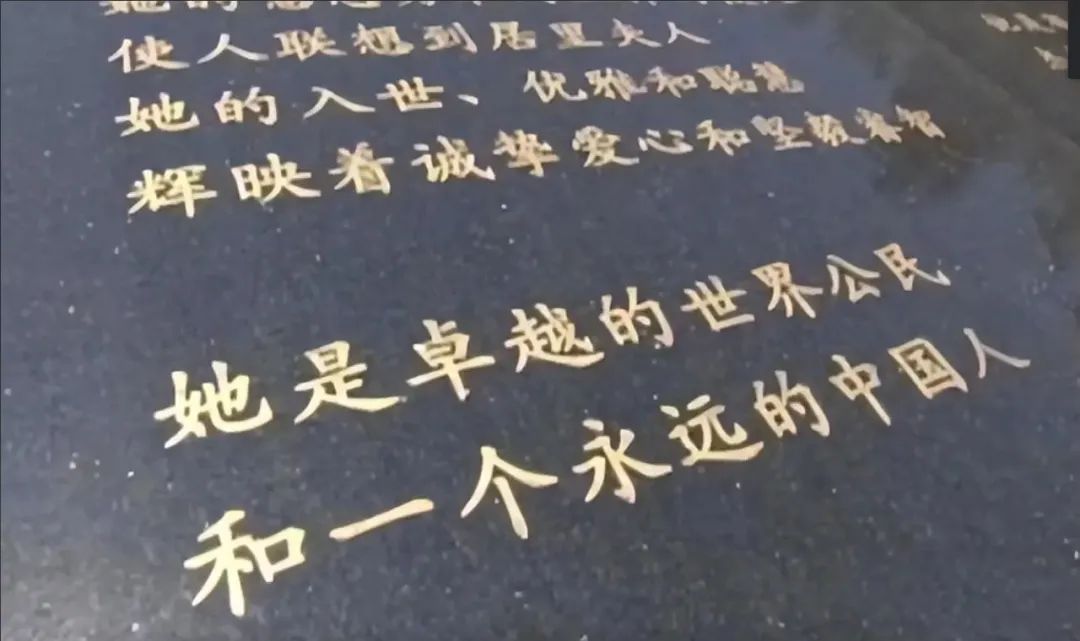 使人联想到居里夫人
她的入世、优雅和聪慧
辉映着诚挚爱心和坚毅睿智
她是卓越的世界公民
和一个永远的中国人